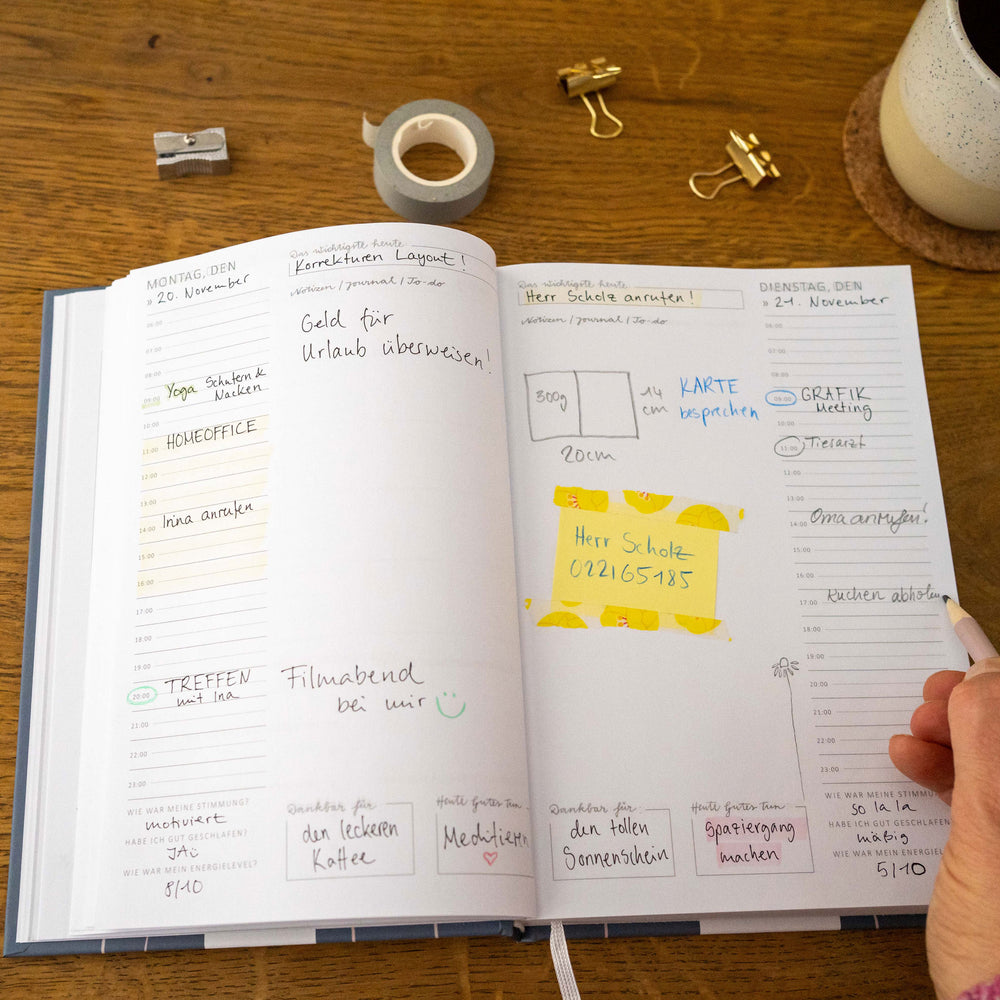 MONTAG, DEN
» 20. November
06:00
07:00
08:00
09:00 Yoga Schultern &
Nacken
10:00
11:00 HOMEOFFICE
12:00
13:00
14:00 Irina anrufen
15:00
16:00
17:00
18:00
19:00
20:00 TREFFEN
mit Ina
21:00
22:00
23:00
WIE WAR MEINE STIMMUNG?
motiviert
HABE ICH GUT GESCHLAFEN?
JA
WIE WAR MEIN ENERGIELEVEL?
8/10
Das wichtigste heute
Korrekturen Layout!
Notizen / Journal / To-do
Geld für
Urlaub überweisen!
Filmabend
bei mir
Dankbar für
den leckeren
Kaffee
Heute Gutes tun
Meditieren
Das wichtigste heute
Herr Scholz anrufen!
Notizen / Journal / To-do
300g
14
cm
20cm
KARTE
besprechen
Herr Scholz
022165185
Dankbar für:
den tollen
Sonnenschein
Heute Gutes tun:
Spaziergang
machen
DIENSTAG, DEN
» 21. November
06:00
07:00
08:00
09:00 GRAFIK
Meeting
10:00
11:00 Tierarzt
12:00
13:00
14:00 Oma anrufen!
15:00
16:00
17:00 Kuchen abholen
18:00
19:00
20:00
21:00
22:00
23:00
WIE WAR MEINE STIMMUNG?
so la la
HABE ICH GUT GESCHLAFEN
mäßig
WIE WAR MEIN ENERGIELEVEL
5/10